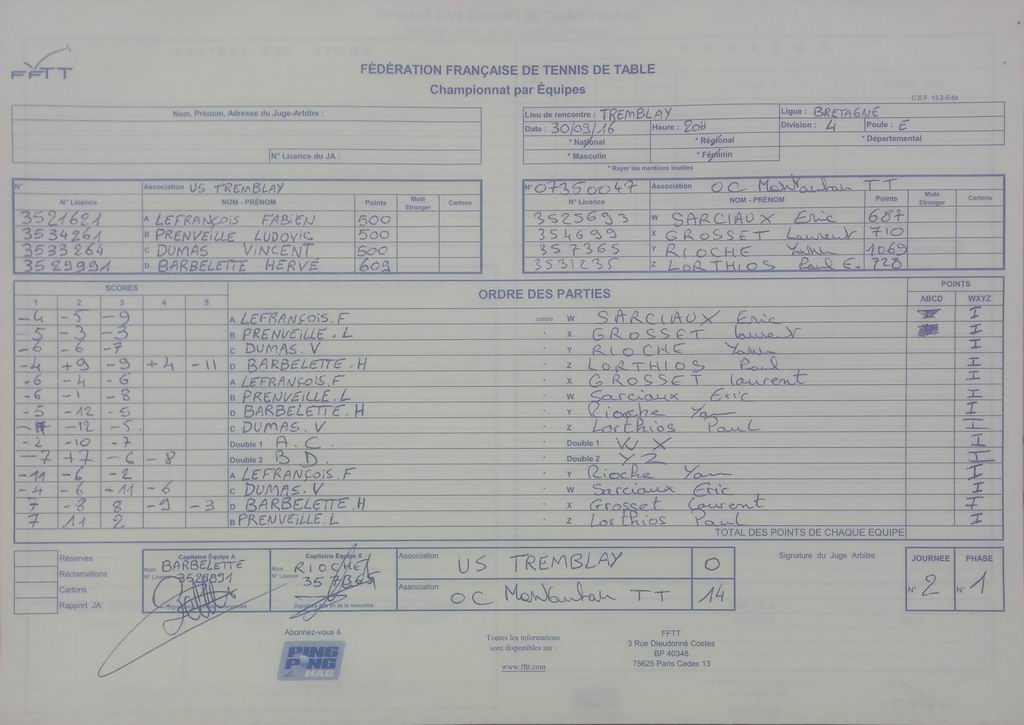 FFTT
FÉDÉRATION FRANÇAISE DE TENNIS DE TABLE
Championnat par Équipes
C.S.F. 13.2.0-4a
Nom, Prénom, Adresse du Juge-Arbitre :
N° Licence du JA :
Lieu de rencontre : TREMBLAY Ligue : BRETAGNE
Date : 30/09/16 Heure : 20H Division : 4 Poule : E
* National * Régional * Départemental
* Masculin * Féminin
* Rayer les mentions inutiles
N° Association US TREMBLAY
N° Licence NOM - PRÉNOM Points Muté Etranger Cartons
3521621 A LEFRANÇOIS FABIEN 500
3534261 B PRENVEILLE LUDOVIC 500
3533264 C DUMAS VINCENT 500
3529991 D BARBELETTE HERVÉ 609
N° 07350047 Association OC Montauban TT
N° Licence NOM - PRÉNOM Points Muté Etranger Cartons
3525693 W SARCIAUX Eric 687
354699 X GROSSET Laurent 710
357365 Y RIOCHE Yann 1069
3531235 Z LORTHIOS Paul E. 728
SCORES ORDRE DES PARTIES POINTS
1 2 3 4 5 ABCD WXYZ
-4 -5 -9 A LEFRANÇOIS.F contre W SARCIAUX Eric I
-5 -3 -3 B PRENVEILLE.L X GROSSET Laurent I
-6 -6 -7 C DUMAS.V Y RIOCHE Yann I
-4 +9 -9 +4 -11 D BARBELETTE.H Z LORTHIOS Paul I
-6 -4 -6 A LEFRANÇOIS.F X GROSSET laurent I
-6 -1 -8 B PRENVEILLE.L W Sarciaux Eric I
-5 -12 -5 D BARBELETTE.H Y Rioche Yan I
-12 -5 C DUMAS.V Z Lorthios Paul I
-2 -10 -7 Double 1 A.C. Double 1 W X I
-7 +7 -6 -8 Double 2 B D. Double 2 YZ I
-11 -6 -2 A LEFRANÇOIS.F Y Rioche Yan I
-4 -6 +11 -6 C DUMAS.V W Sarciaux Eric I
7 -8 8 -9 -3 D BARBELETTE.H X Grosset Laurent I
7 11 2 B PRENVEILLE.L Z Lorthios Paul I
TOTAL DES POINTS DE CHAQUE EQUIPE
Réserves
Réclamations
Cartons
Rapport JA
Capitaine Équipe A
Nom BARBELETTE
N° Licence 3529991
Capitaine Équipe X
Nom RIOCHE
N° Licence 357365
Signature en fin de la rencontre
Association US TREMBLAY 0
Association OC Montauban TT 14
Signature du Juge Arbitre
JOURNEE PHASE
N° 2 N° 1
Abonnez-vous à
PING PONG MAG
Toutes les informations
sont disponibles sur :
www.fftt.com
FFTT
3 Rue Dieudonné Costes
BP 40348
75625 Paris Cedex 13